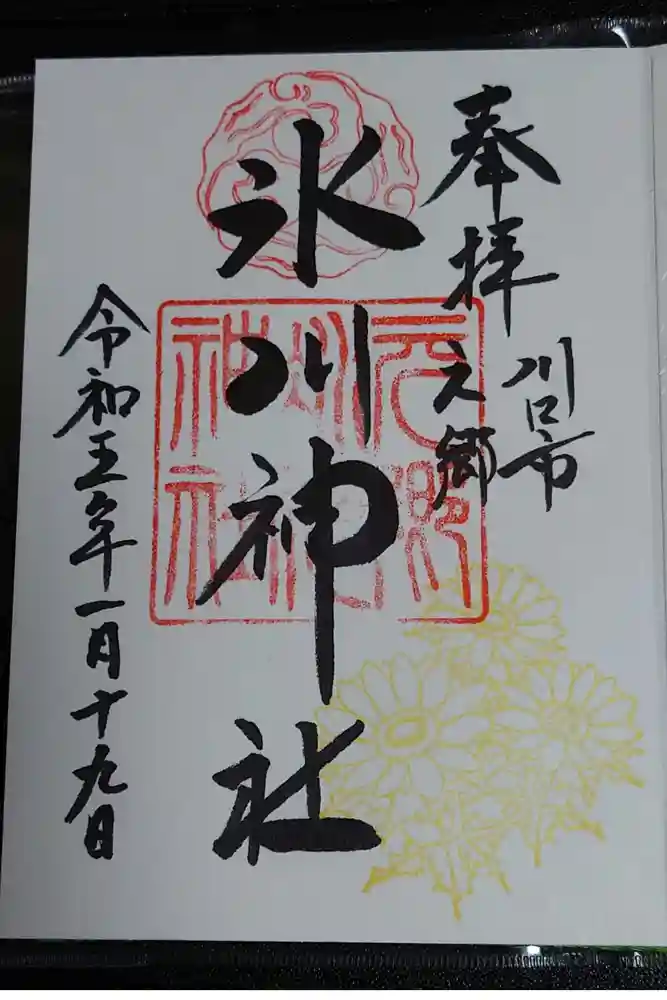 奉拝
川口市
元郷
氷川神社
元郷
氷川
神社
令和五年一月十九日